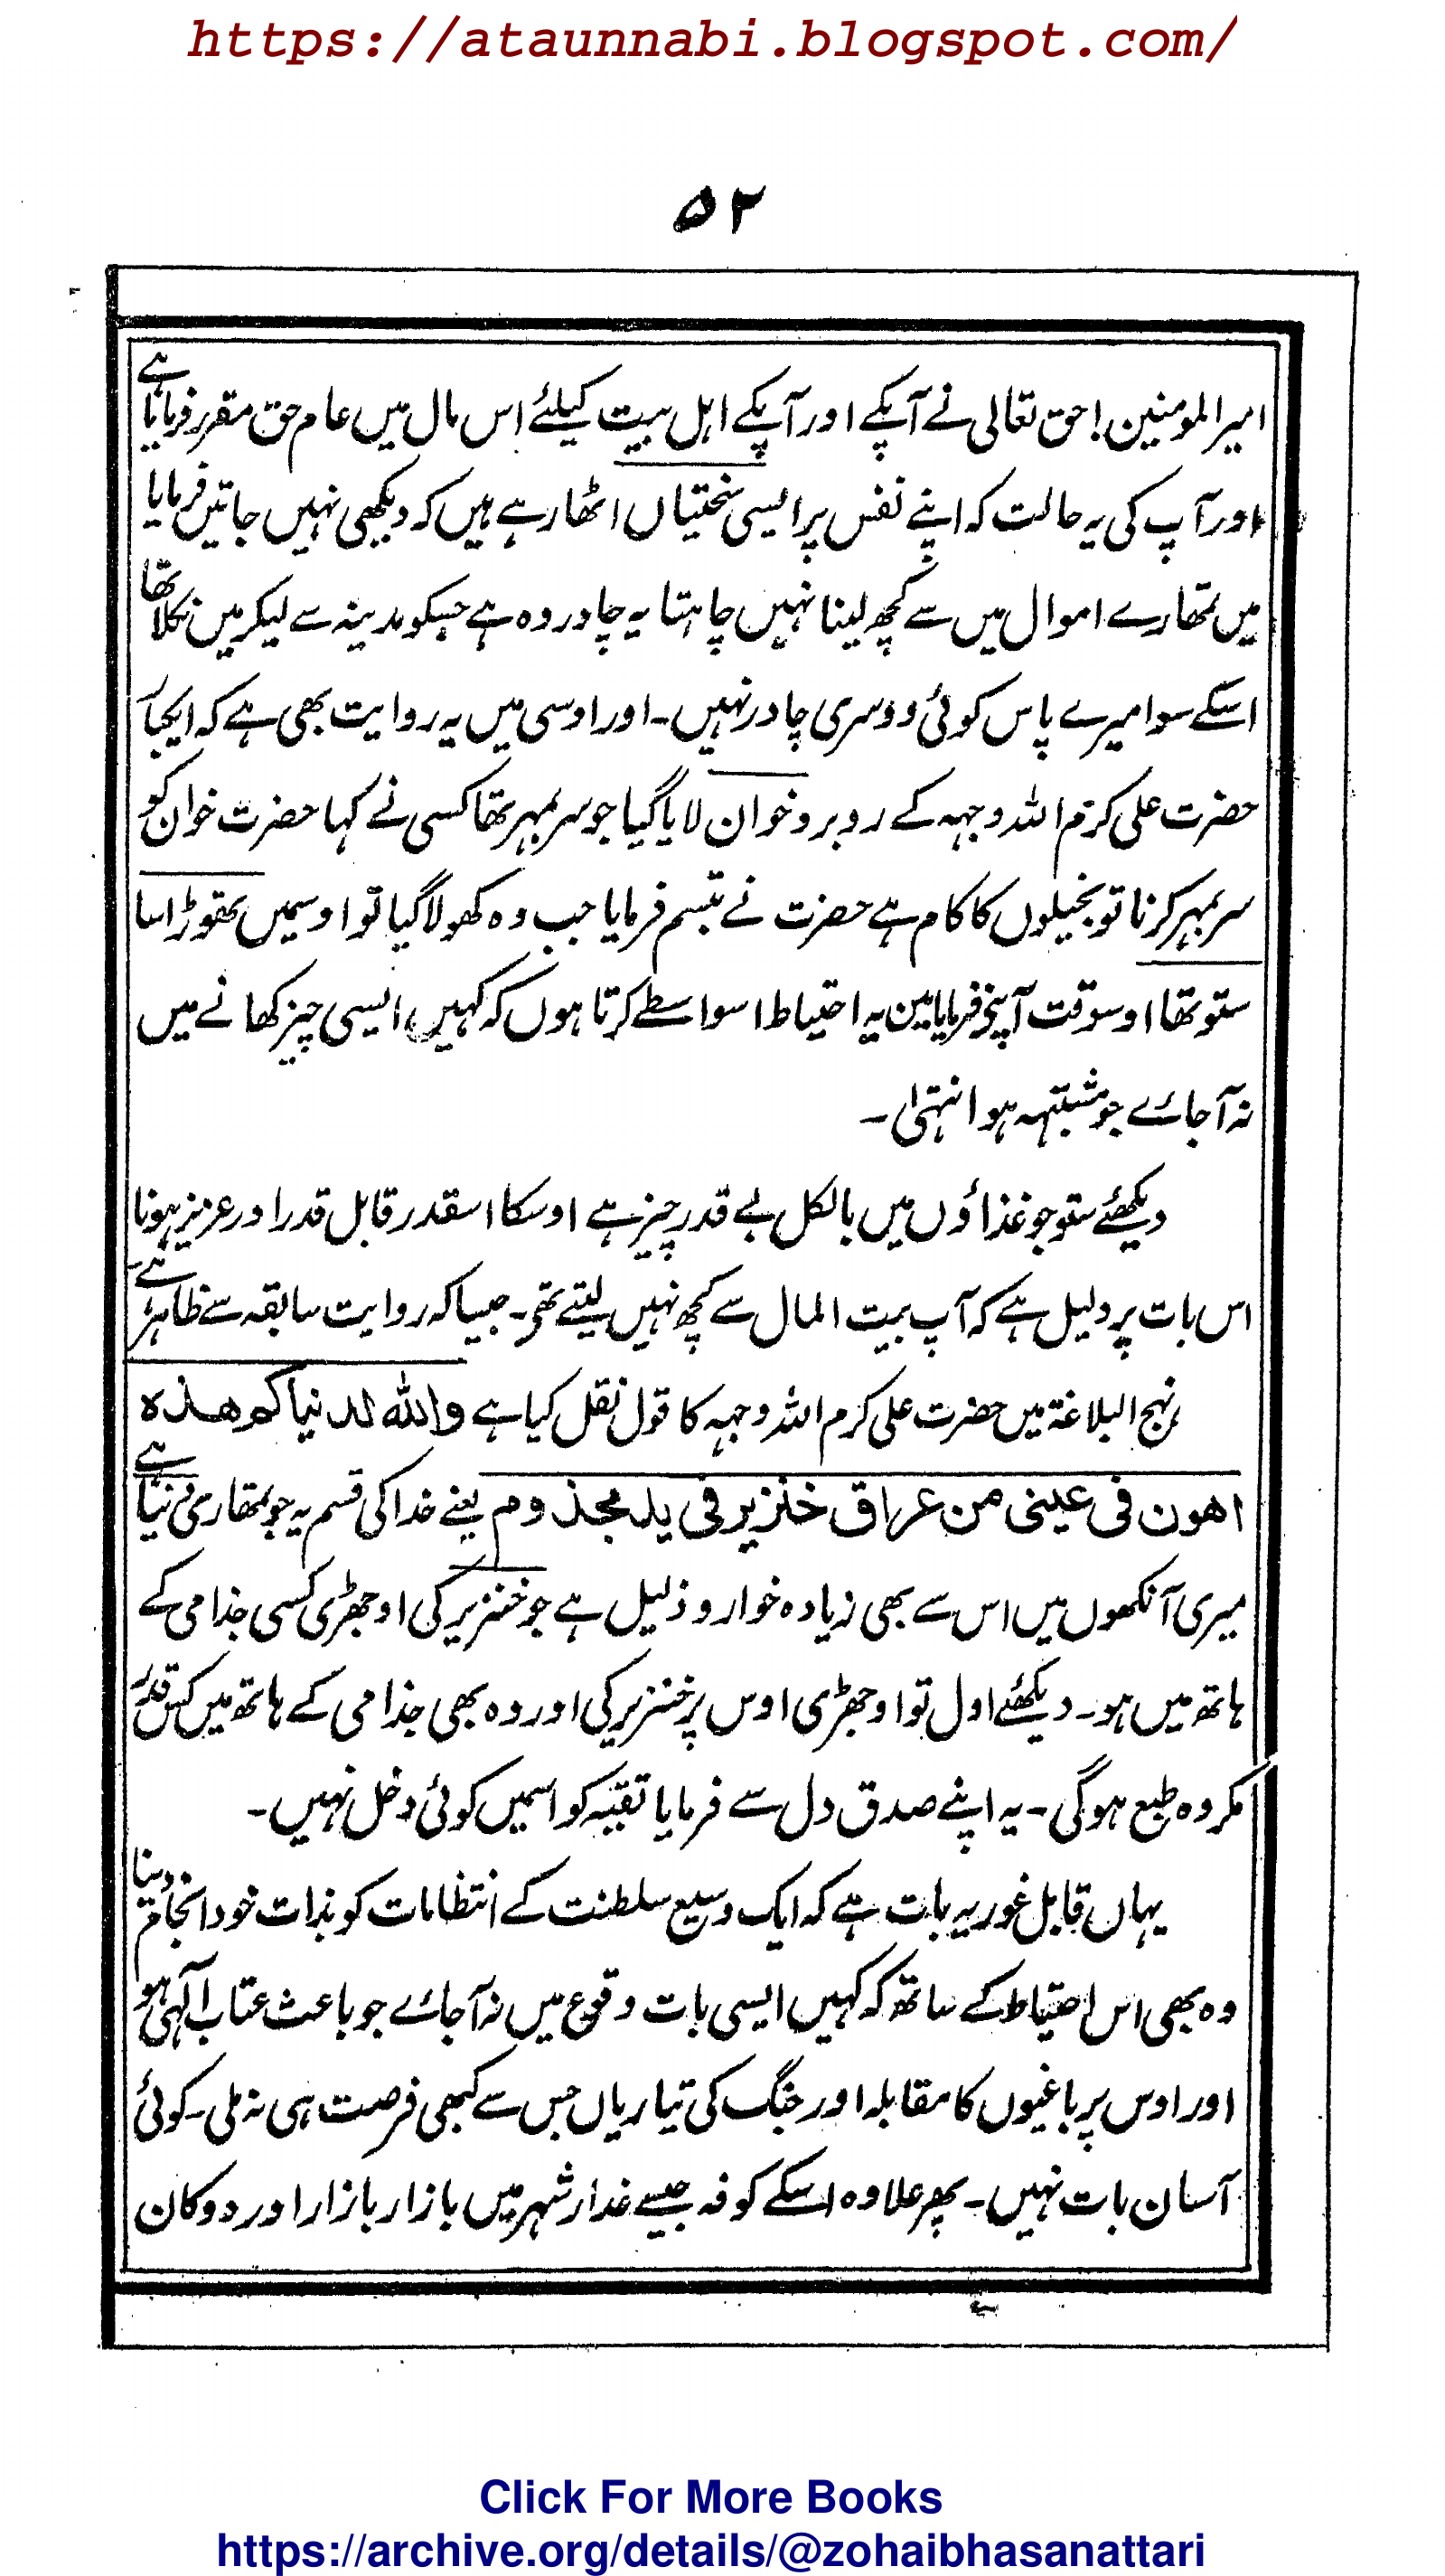 https://ataunnabi.blogspot.com/
۵۲
امیرالمومنین! حق تعالی نے آپکے اور آپکے اہل بیت کیلئے اس مال میں عام حق مقرر فرمایا ہے
اور آپ کی یہ حالت کہ اپنے نفس پر ایسی سختیاں اٹھا رہے ہیں کہ دیکھی نہیں جاتیں فرمایا
میں تمھارے اموال میں سے کچھ لینا نہیں چاہتا یہ چادر وہ ہے جسکو مدینہ سے لیکر میں نکلا تھا
اسکے سوا میرے پاس کوئی دوسری چادر نہیں۔ اور اوسی میں یہ روایت بھی ہے کہ ایکبار
حضرت علی کرم اللہ وجہہ کے روبرو خوان لایا گیا جو سر بمہر تھا کسی نے کہا حضرت خوان کو
سر بمہر کرنا تو بخیلوں کا کام ہے حضرت نے تبسم فرمایا جب وہ کھولا گیا تو اوسمیں تھوڑا سا
ستو تھا اوسوقت آپنے فرمایا مین یہ احتیاط اسواسطے کرتا ہوں کہ کہیں ایسی چیز کھانے میں
نہ آجائے جو مشتبہہ ہو انتہیٰ۔
دیکھئے ستو جو غذاؤں میں بالکل بے قدر چیز ہے اوسکا اسقدر قابل قدر اور عزیز ہونا
اس بات پر دلیل ہے کہ آپ بیت المال سے کچھ نہیں لیتے تھے۔ جیسا کہ روایت سابقہ سے ظاہر ہے
نہج البلاغۃ میں حضرت علی کرم اللہ وجہہ کا قول نقل کیا ہے واللہ لدنیاکم ھذہ
اھون فی عینی من عراق خنزیر فی ید مجذوم یعنے خدا کی قسم یہ جو تمھاری دنیا ہے
میری آنکھوں میں اس سے بھی زیادہ خوار و ذلیل ہے جو خنزیر کی اوجھڑی کسی جذامی کے
ہاتھ میں ہو۔ دیکھئے اول تو اوجھڑی اوس پر خنزیر کی اور وہ بھی جذامی کے ہاتھ میں کس قدر
مکروہ طبع ہوگی۔ یہ اپنے صدق دل سے فرمایا تقیہ کو اسمیں کوئی دخل نہیں۔
یہاں قابل غور یہ بات ہے کہ ایک وسیع سلطنت کے انتظامات کو بذات خود انجام دینا
وہ بھی اس احتیاط کے ساتھ کہ کہیں ایسی بات وقوع میں نہ آجائے جو باعث عتاب الٰہی ہو
اور اوس پر باغیوں کا مقابلہ اور جنگ کی تیاریاں جس سے کبھی فرصت ہی نہ ملی۔ کوئی
آسان بات نہیں۔ پھر علاوہ اسکے کوفہ جیسے غدار شہر میں بازار بازار اور دوکان
Click For More Books
https://archive.org/details/@zohaibhasanattari